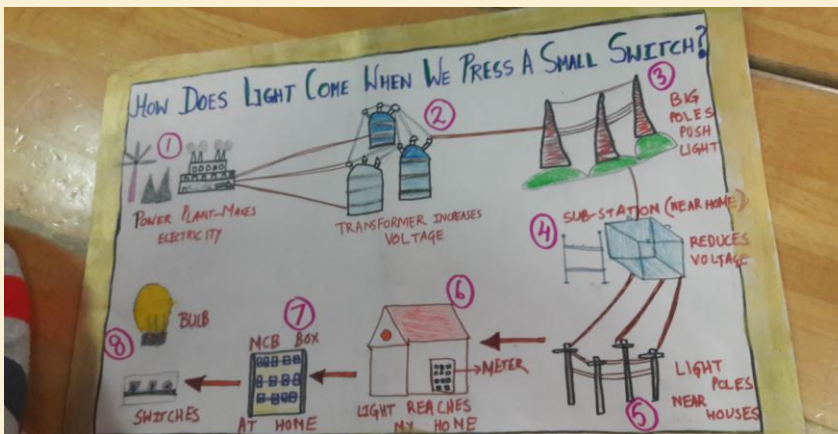 HOW DOES LIGHT COME WHEN WE PRESS A SMALL SWITCH?
1
POWER PLANT-MAKES
ELECTRICITY
2
TRANSFORMER INCREASES
VOLTAGE
3
BIG
POLES
PUSH
LIGHT
4
SUB-STATION (NEAR HOME)
REDUCES
VOLTAGE
5
LIGHT
POLES
NEAR
HOUSES
6
METER
LIGHT REACHES
MY HOME
7
MCB BOX
AT HOME
8
BULB
SWITCHES